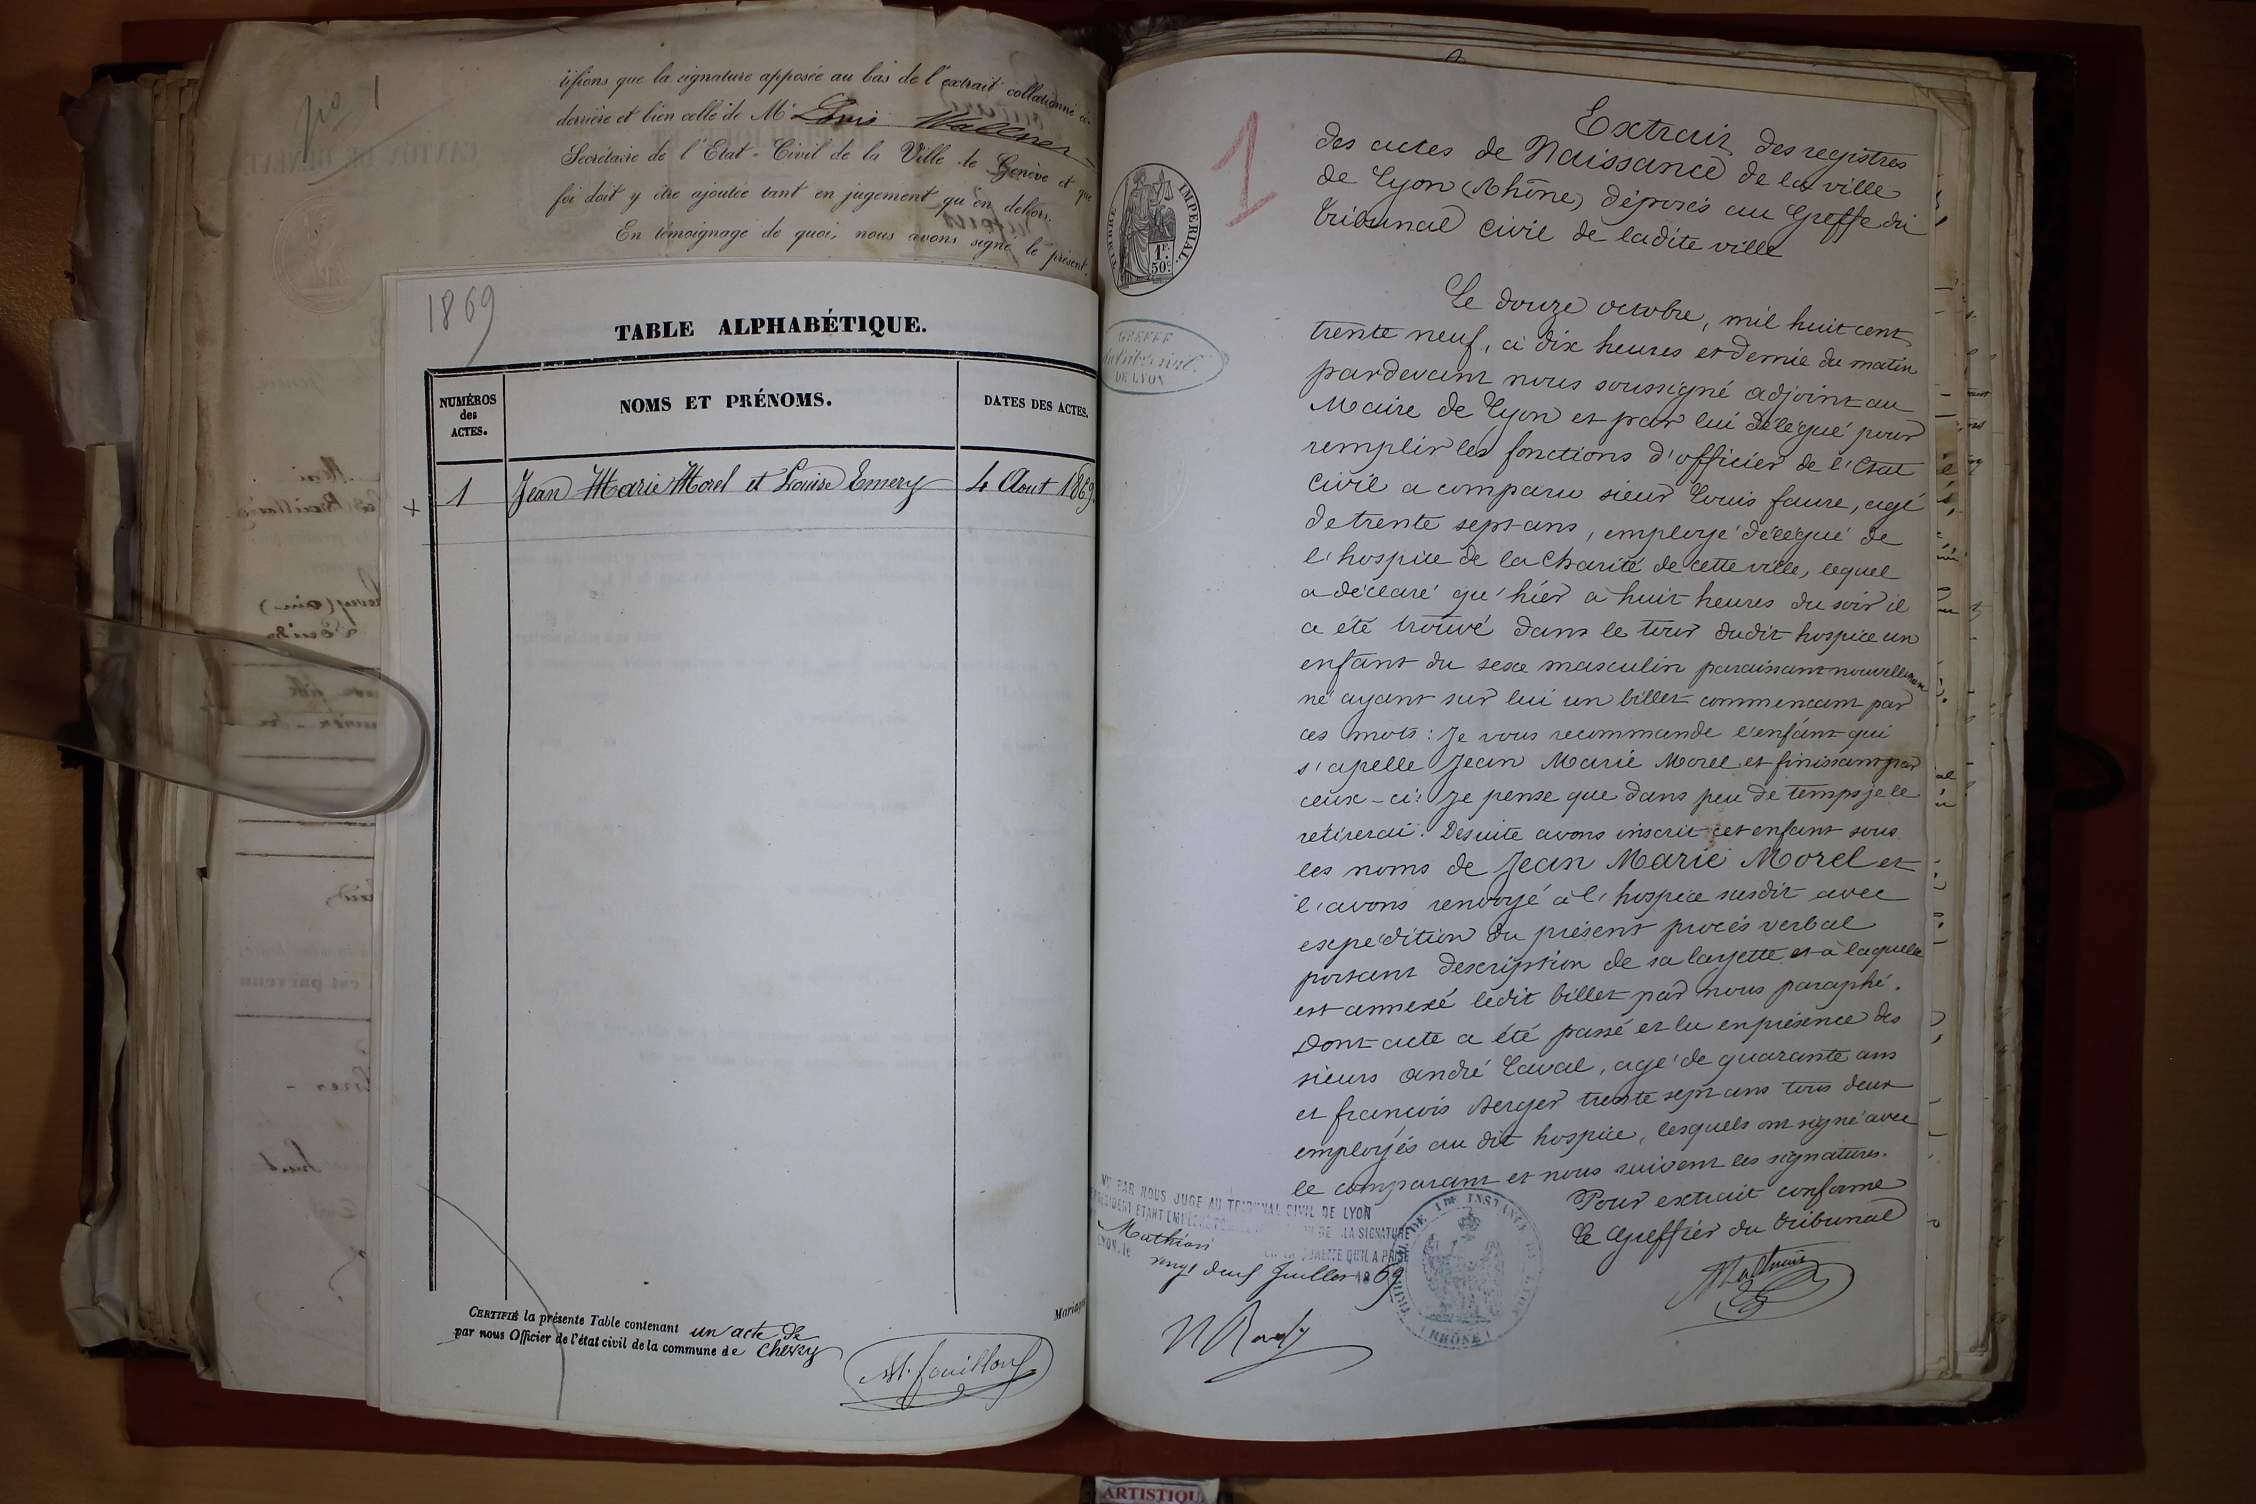 No 1
tifions que la signature apposée au bas de l'extrait collationné ci-
derrière et bien celle de Mr Louis Wallner
Secrétaire de l'Etat-Civil de la Ville de Genève et que
foi doit y être ajoutée tant en jugement qu'en dehors.
En témoignage de quoi, nous avons signé le présent.
1869
TABLE ALPHABÉTIQUE.
NUMÉROS des ACTES.
NOMS ET PRÉNOMS.
DATES DES ACTES.
1 Jean Marie Morel et Louise Emery 4 Aout 1869.
CERTIFIÉ la présente Table contenant un acte de
par nous Officier de l'état civil de la commune de Chevry
Mariages
1
TIMBRE IMPERIAL
1F.
50c.
GREFFE
DE LYON
Extrait des registres
des actes de Naissance de la ville
de Lyon (Rhône) déposés au Greffe du
tribunal civil de ladite ville
Le douze octobre, mil huit cent
trente neuf, à dix heures et demie du matin
pardevant nous soussigné adjoint au
Maire de Lyon et par lui délégué pour
remplir les fonctions d'officier de l'Etat
civil a comparu sieur Louis faure, agé
de trente sept ans, employé délégué de
l'hospice de la Charité de cette ville, lequel
a déclaré qu'hier à huit heures du soir il
a été trouvé dans le tour dudit hospice un
enfant du sexe masculin paraissant nouvellement
né ayant sur lui un billet commencant par
ces mots : Je vous recommande l'enfant qui
s'apelle Jean Marie Morel et finissant par
ceux-ci: Je pense que dans peu de temps je le
retirerai. Desuite avons inscrit cet enfant sous
les noms de Jean Marie Morel et
l'avons renvoyé à l'hospice susdit avec
expédition du présent procés verbal
portant description de sa layette et à laquelle
est annexé ledit billet par nous paraphé.
Dont acte a été passé et lu en présence des
sieurs andré Laval, agé de quarante ans
et francois Berger trente sept ans tous deux
employés au dit hospice, lesquels ont signé avec
le comparant et nous suivent les signatures.
Pour extrait conforme
Le Greffier du tribunal
VU PAR NOUS JUGE AU TRIBUNAL CIVIL DE LYON
LA SIGNATURE
QU'IL A PRISE
Mathian
LYON, le vingt deux Juillet 1869
TRIBUNAL DE 1RE INSTANCE DE LYON
(RHÔNE)
ARTISTIQU